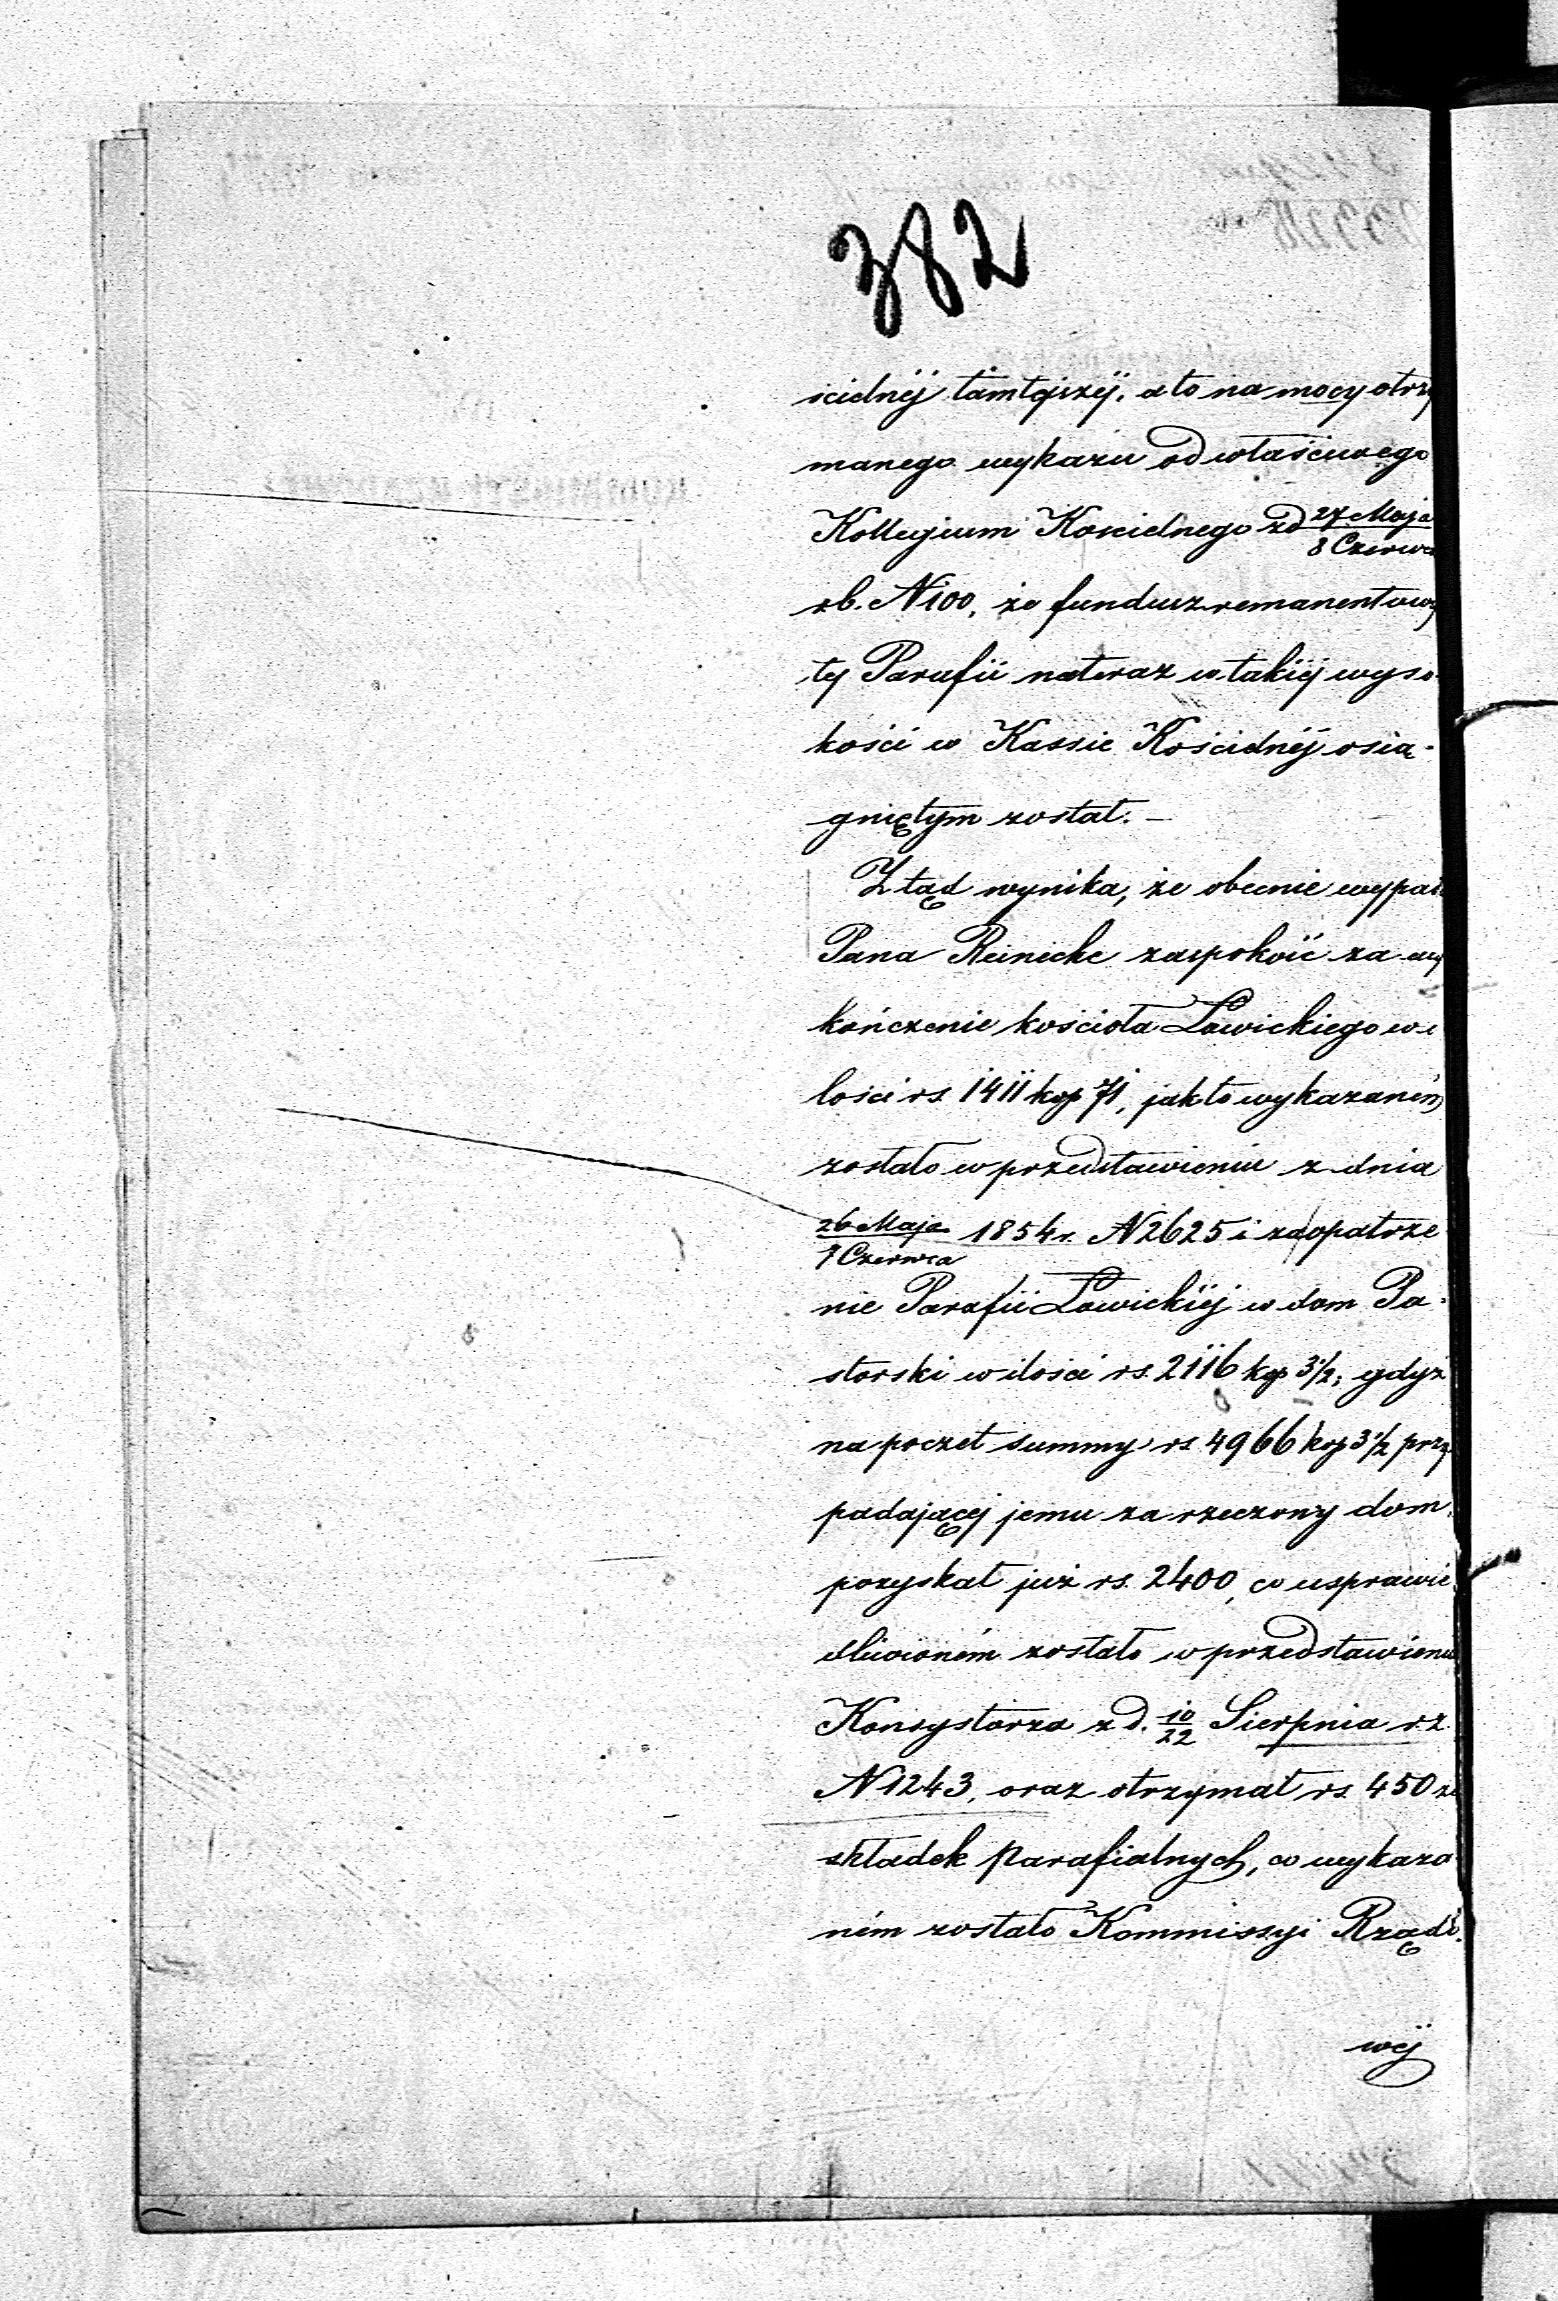 382
ścielnéj tamtejszéj, a to na mocy otrzy
manego wykazu od właściwego
Kollegium Kościelnego z d 27 Maja / 8 Czerwca
r b. N 100, że fundusz remanentowy
téj Parafii na teraz w takiéj wyso-
kości w Kassie Kościelnéj osią-
gniętym został. —
Ztąd wynika, że obecnie wypada
Pana Reinecke zaspokoić za wy
kończenie kościoła Ławickiego w i
lości rs. 1411 kop 71, jak to wykazaném
zostało w przedstawieniu z dnia
26 Maja / 7 Czerwca 1854 r. N 2625 i zaopatrze
nie Parafii Ławickiéj w dom Pa-
storski w ilości rs. 2116 kop 3 1/2; gdyż
na poczet summy rs 4966 kop 3 1/2 przy
padającéj jemu za rzeczony dom,
pozyskał już rs. 2400, co usprawie
dliwioném zostało w przedstawieniu
Konsystorza z d. 10/22 Sierpnia r. z.
N 1243, oraz otrzymał rs. 450 ze
składek parafialnych, co wykaza
ném zostało Kommissyi Rządo-
wéj